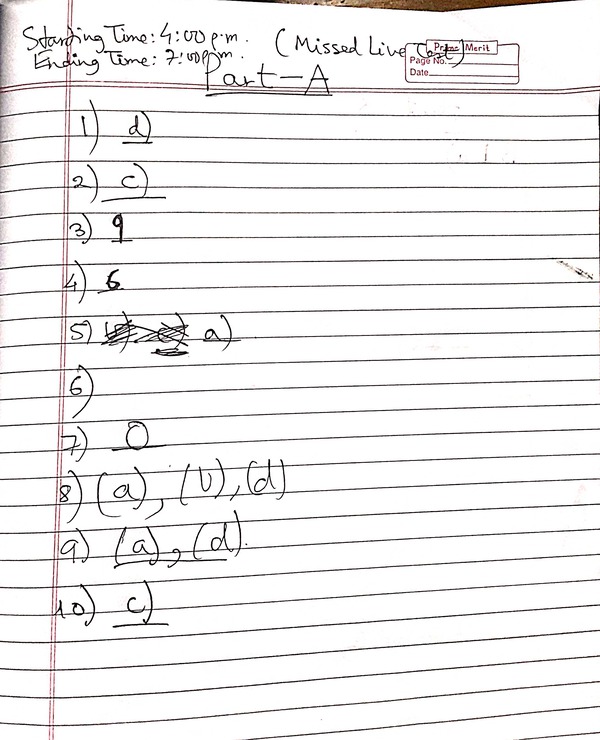 Starting Time: 4:00 p.m. (Missed Live Test)
Ending Time: 7:00 p.m.
Prime Merit
Page No.
Date
Part-A
1) d)
2) c)
3) 9
4) 6
5) a)
6)
7) 0
8) (a), (b), (d)
9) (a), (d).
10) c)